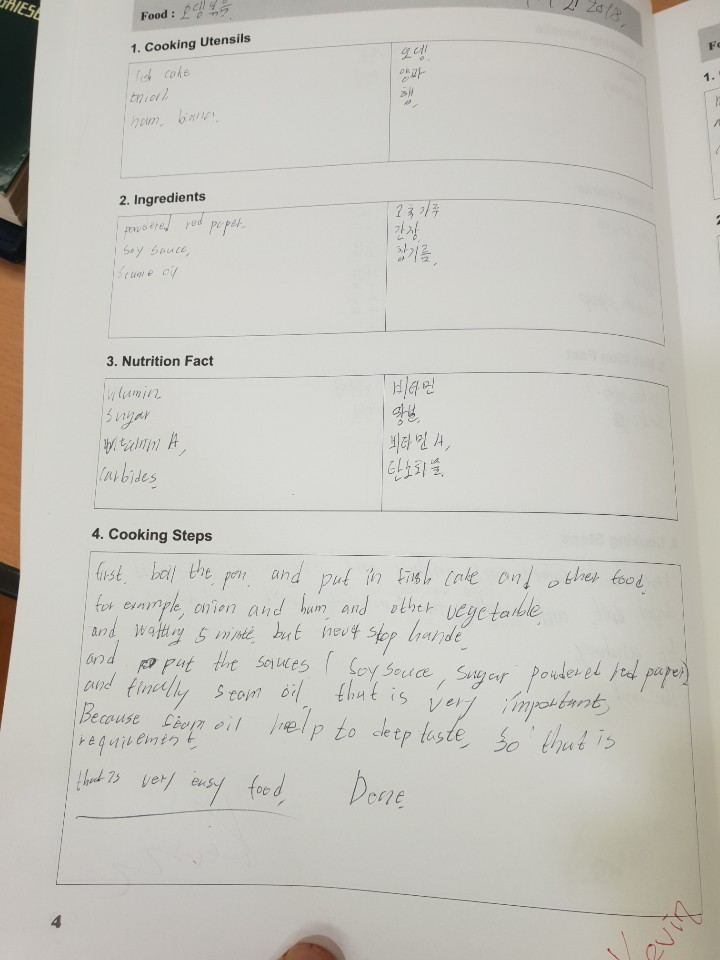 Food : 오뎅볶음
2018.
1. Cooking Utensils
fish cake
onion
ham.
오뎅.
양파
햄.
2. Ingredients
powdered red paper.
Soy sauce,
oil
간장
참기름.
3. Nutrition Fact
vitamin
Sugar
vitamin A,
carbides
비타민
비타민 A,
탄소화물
4. Cooking Steps
first. boil the pan and put in fish cake and other food.
for example, onion and ham and other vegetable.
and 5 but never stop hande
and put the sauces ( Soy souce, Sugar powdered red paper)
and finally seam oil, that is very important,
Because seam oil help to deep taste, So that is
requirement,
that is very easy food, Done.
4
Kevin